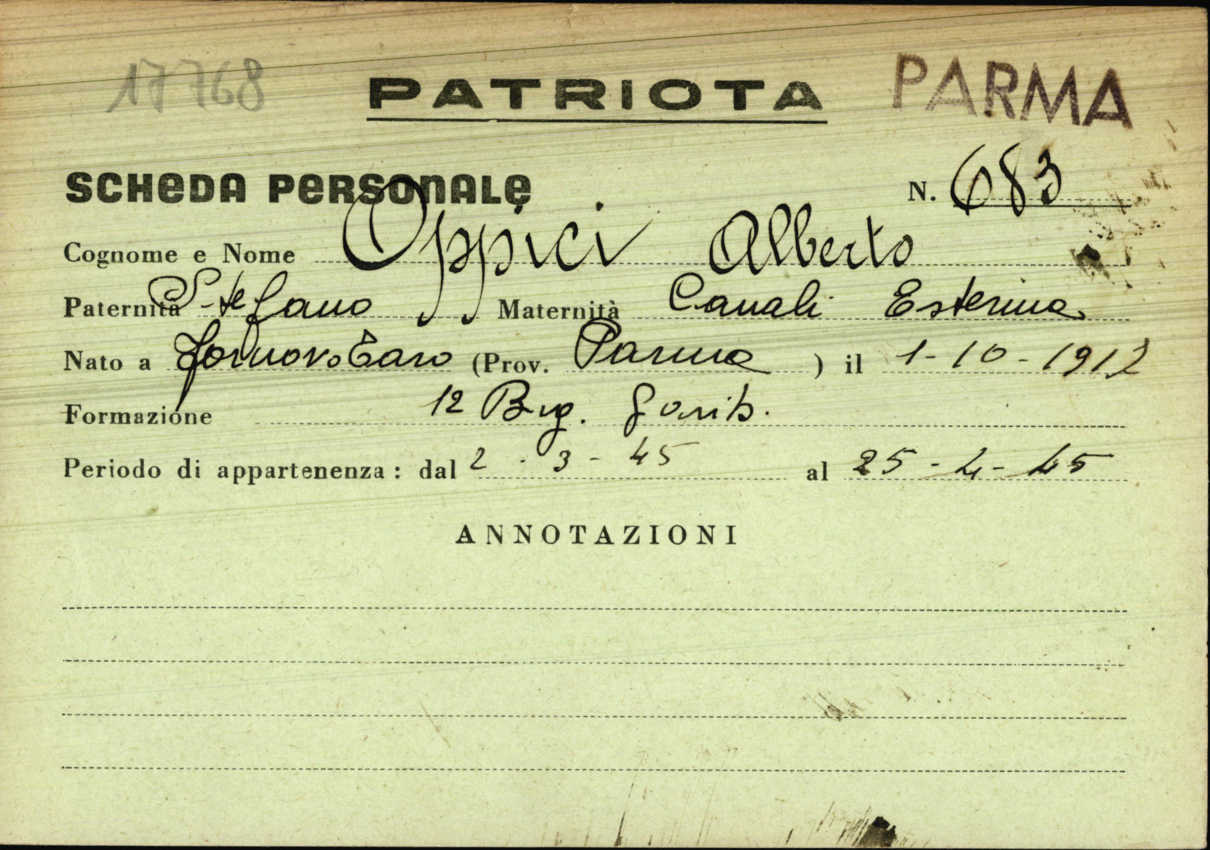 17768
PATRIOTA PARMA
SCHEDA PERSONALE N. 683
Cognome e Nome Oppici Alberto
Paternità Stefano Maternità Canali Esterina
Nato a Fornovo Taro (Prov. Parma ) il 1-10-1912
Formazione 12 Brig. Garib.
Periodo di appartenenza: dal 2-3-45 al 25-4-45
ANNOTAZIONI